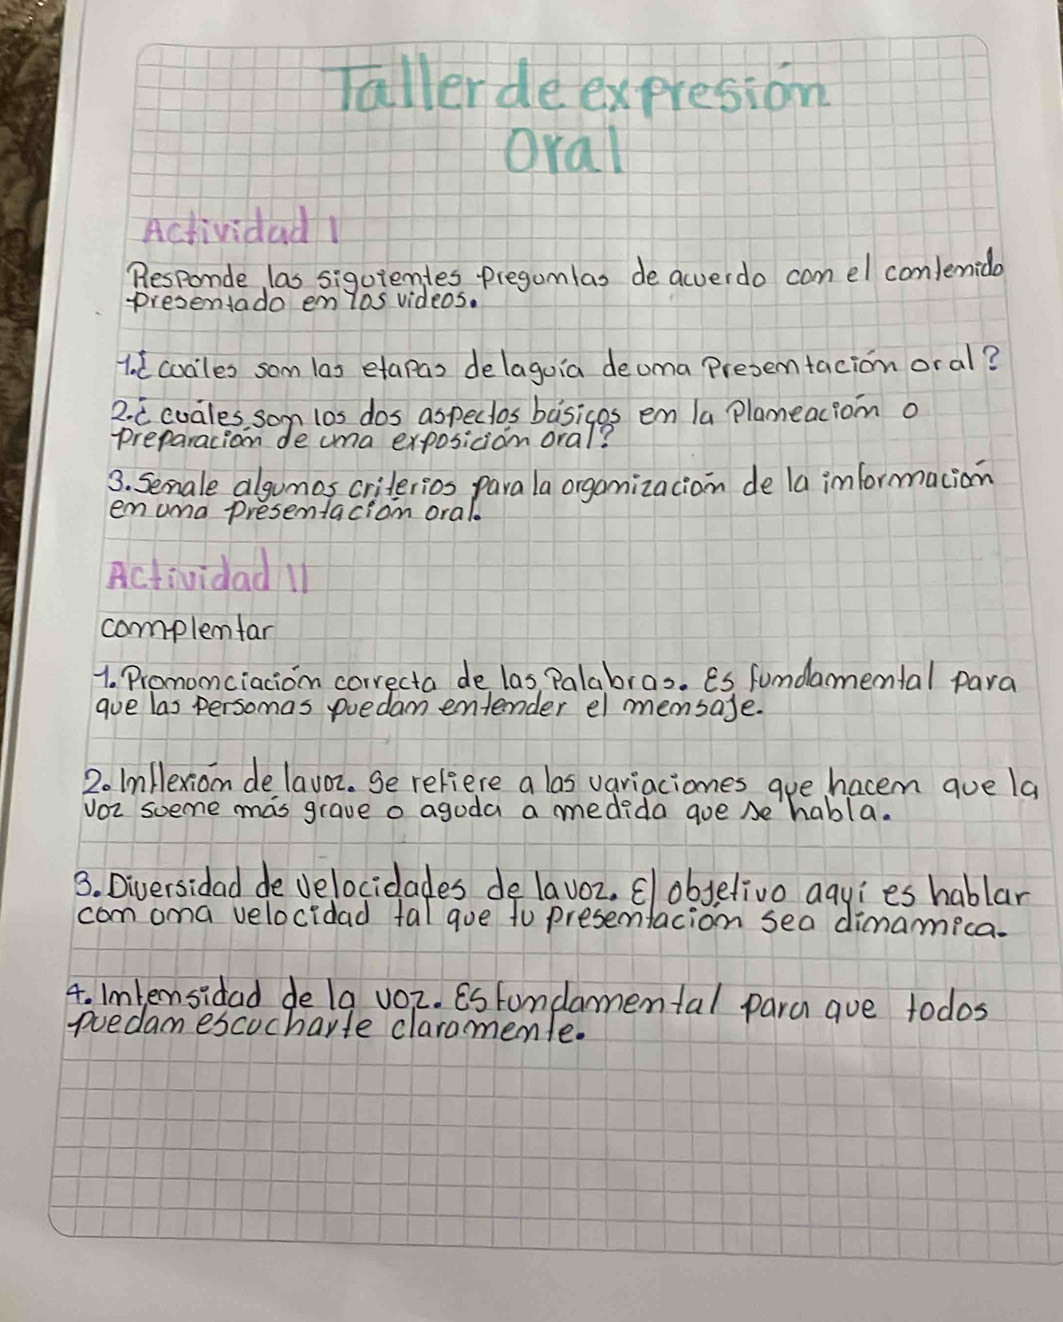 Taller de expresión
Oral
Actividad 1
Responde las siguientes preguntas de acuerdo con el contenido
presentado en los videos.
1.¿cuáles son las etapas de la guía de una Presentación oral?
2.¿cuáles son los dos aspectos básicos en la Planeación o
preparación de una exposición oral?
3.Señale algunos criterios para la organización de la información
en una presentación oral.
Actividad 11
complentar
1.Pronunciación correcta de las Palabras. Es fundamental para
que las Personas puedan entender el mensaje.
2.Inflexion de la voz. Se refiere a las variaciones que hacen que la
voz suene más grave o aguda a medida que se habla.
3.Diversidad de velocidades de la voz. El objetivo aquí es hablar
con una velocidad tal que tu presentación sea dinamica.
4.Intensidad de la voz. Es fundamental para que todos
puedan escucharte claramente.